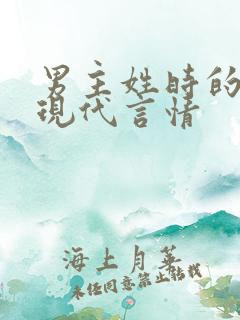 男主姓時的
現代言情
海上月華
未经同意禁止转载